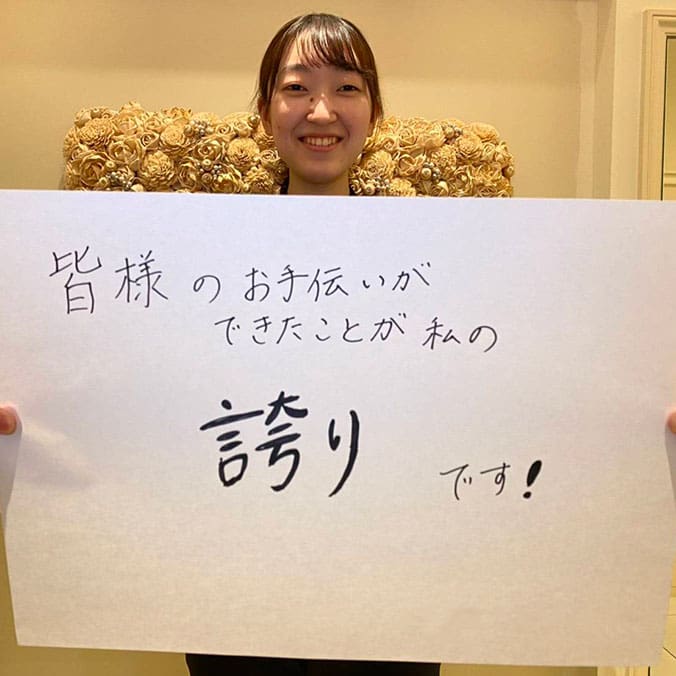 皆様のお手伝いが
できたことが私の
誇り
です!